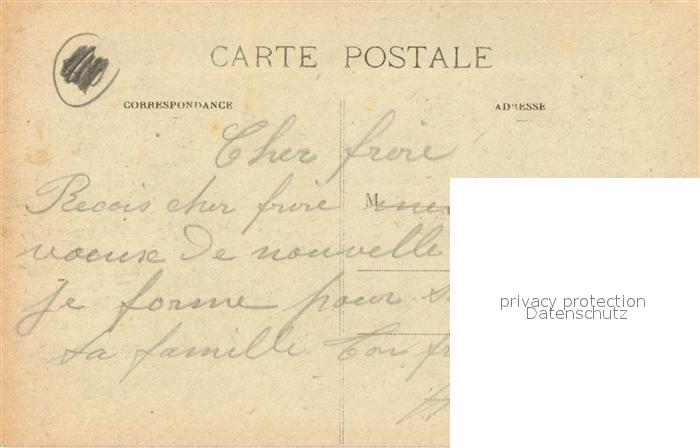 CARTE POSTALE
CORRESPONDANCE
ADRESSE
Cher frere
Recois cher frere mes
M
voeux de nouvelle
je forme pour
sa famille Ton fr
privacy protection
Datenschutz